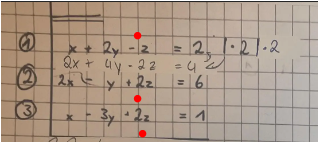 ① x + 2y - z = 2 | · 2 | · 2
2x + 4y - 2z = 4
② 2x - y + 2z = 6
③ x - 3y + 2z = 1